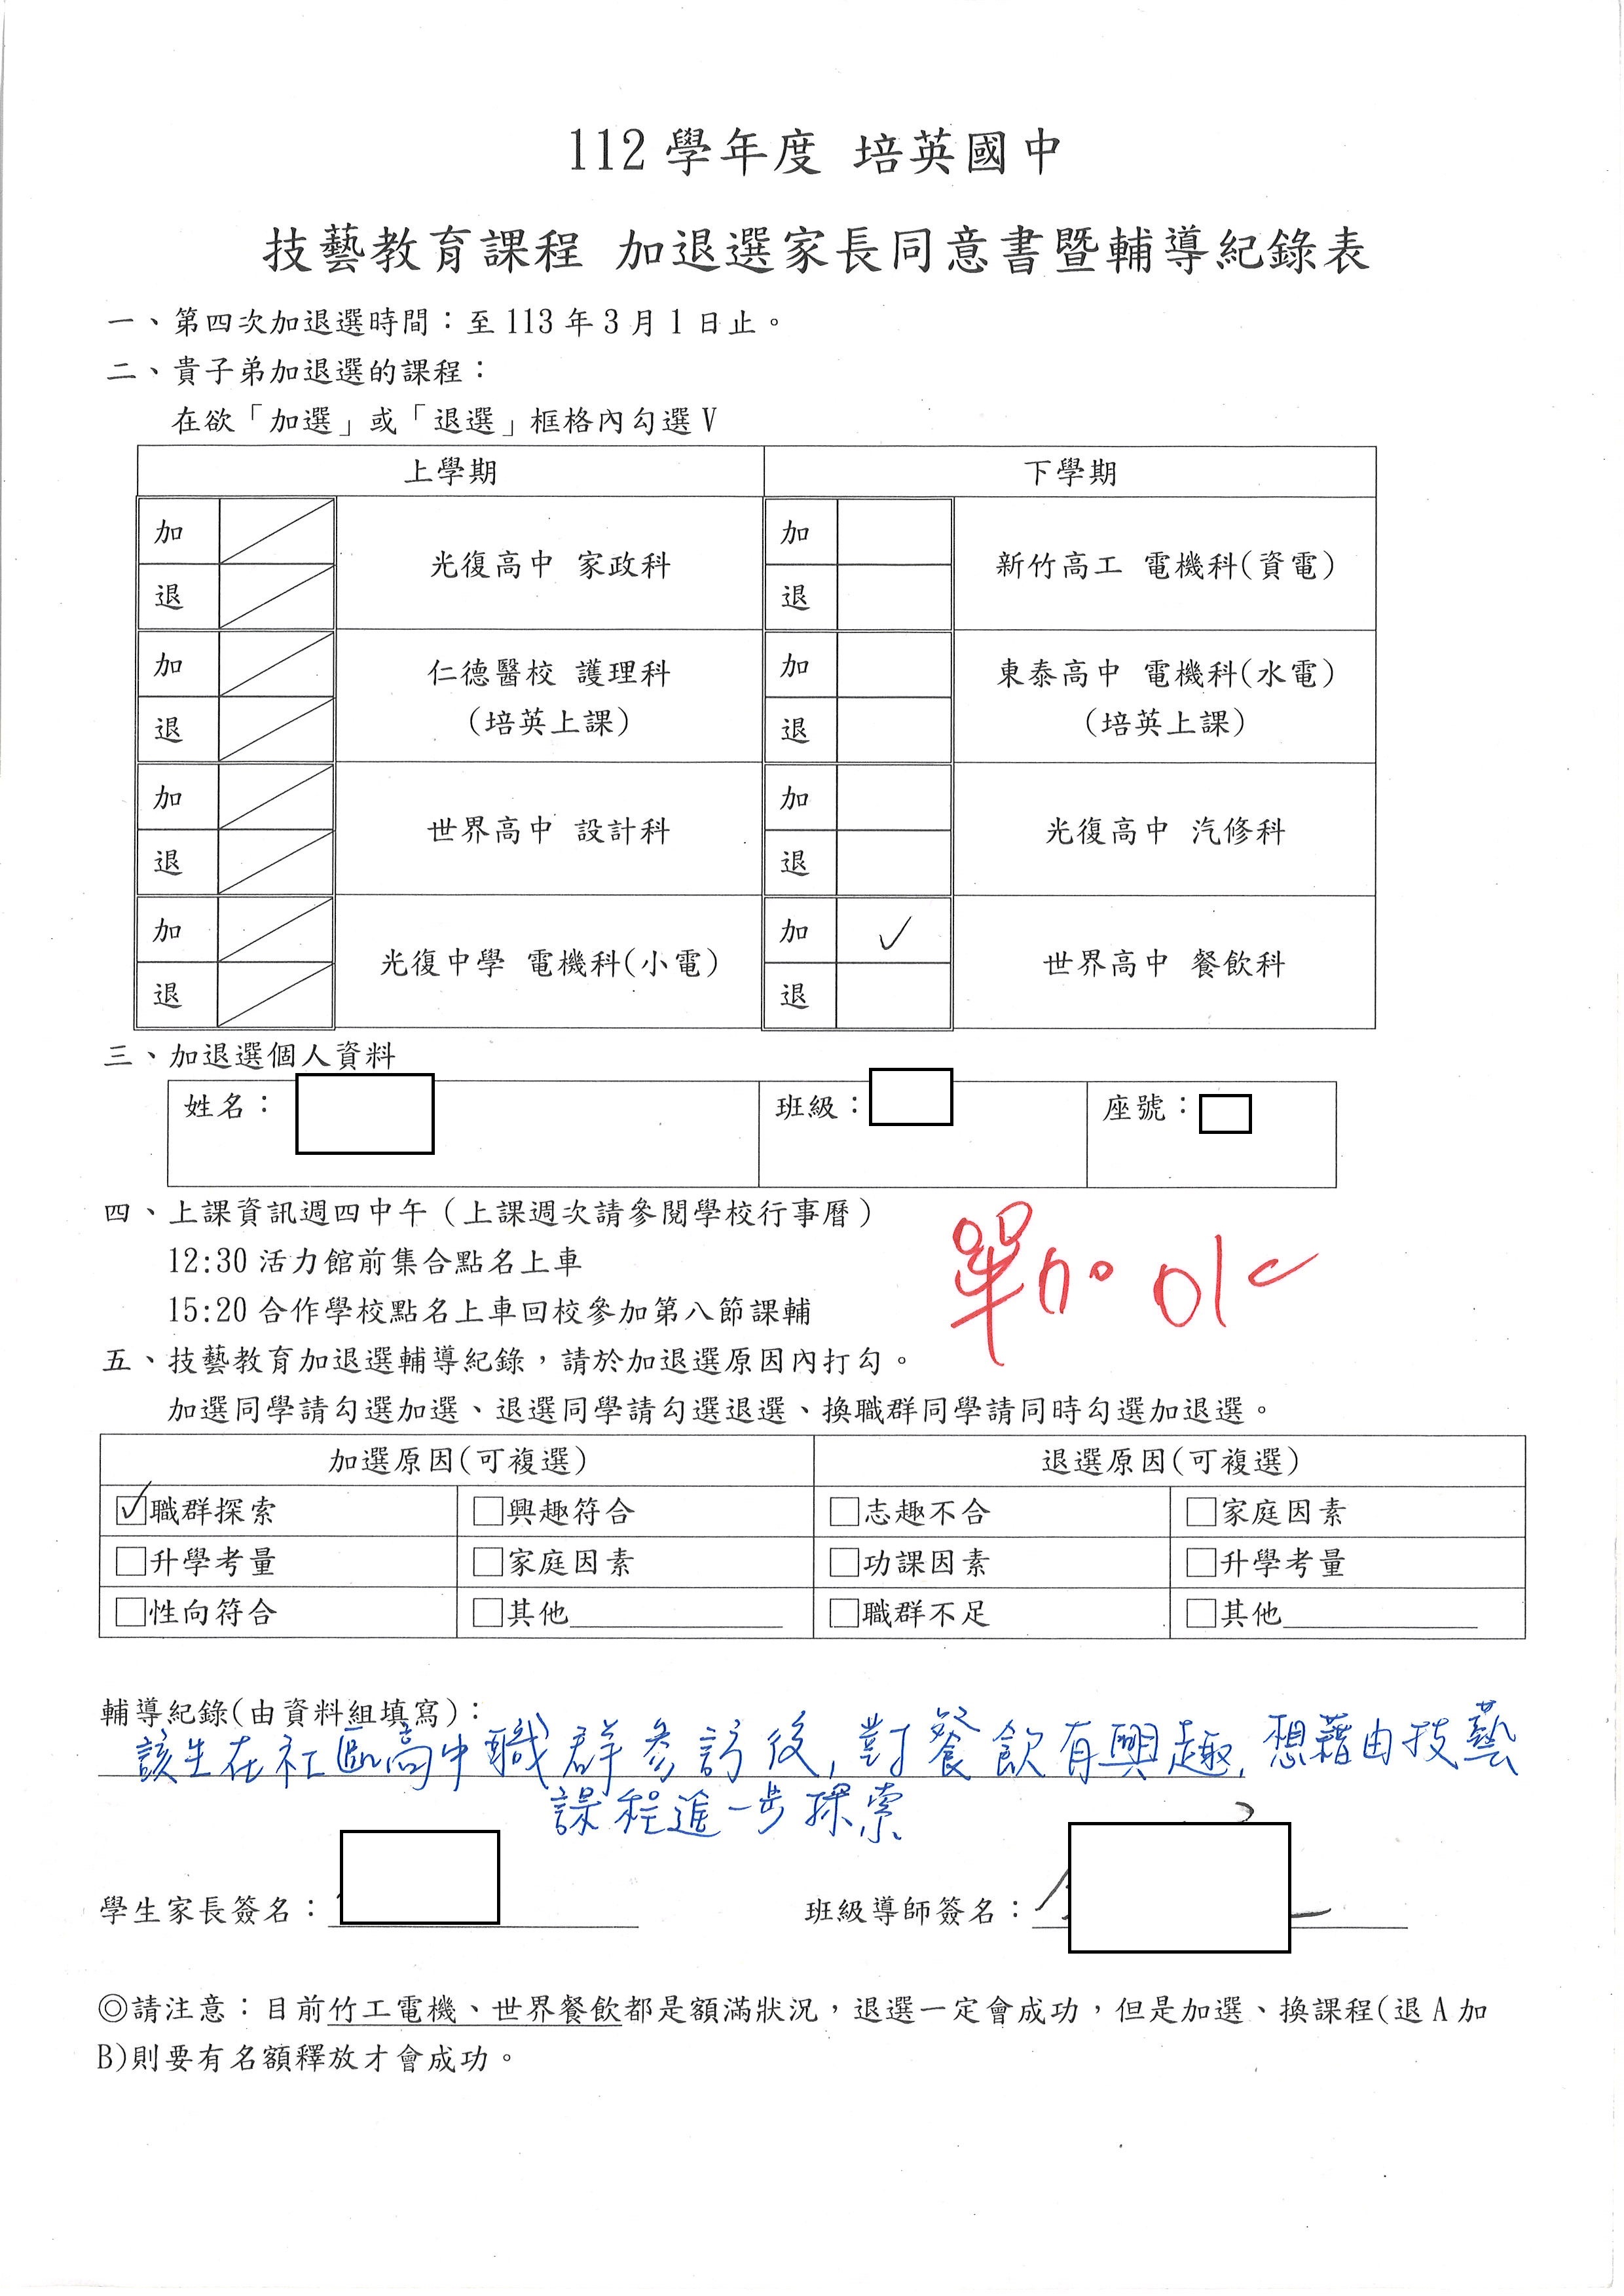 112 學年度 培英國中
技藝教育課程 加退選家長同意書暨輔導紀錄表
一、第四次加退選時間：至 113 年 3 月 1 日止。
二、貴子弟加退選的課程：
在欲「加選」或「退選」框格內勾選 V
上學期 下學期
加 光復高中 家政科 加 新竹高工 電機科(資電)
退 退
加 仁德醫校 護理科 加 東泰高中 電機科(水電)
退 (培英上課) 退 (培英上課)
加 世界高中 設計科 加 光復高中 汽修科
退 退
加 光復中學 電機科(小電) 加 ✓ 世界高中 餐飲科
退 退
三、加退選個人資料
姓名： 班級： 座號：
四、上課資訊週四中午（上課週次請參閱學校行事曆）
12:30 活力館前集合點名上車
15:20 合作學校點名上車回校參加第八節課輔
單加 ok
五、技藝教育加退選輔導紀錄，請於加退選原因內打勾。
加選同學請勾選加選、退選同學請勾選退選、換職群同學請同時勾選加退選。
加選原因(可複選) 退選原因(可複選)
☑職群探索 □興趣符合 □志趣不合 □家庭因素
□升學考量 □家庭因素 □功課因素 □升學考量
□性向符合 □其他 □職群不足 □其他
輔導紀錄(由資料組填寫)：
該生在社區高中職群參訪後，對餐飲有興趣，想藉由技藝
課程進一步探索
學生家長簽名： 班級導師簽名：
◎請注意：目前竹工電機、世界餐飲都是額滿狀況，退選一定會成功，但是加選、換課程(退 A 加
B)則要有名額釋放才會成功。